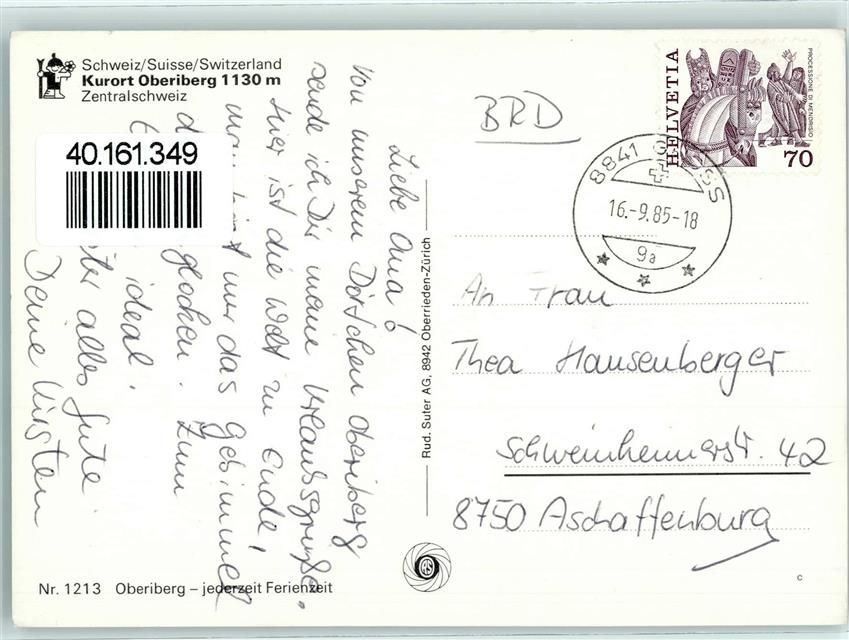 Schweiz/Suisse/Switzerland
Kurort Oberiberg 1130 m
Zentralschweiz
40.161.349
Liebe Oma!
Von unserem Dörfchen Oberiberg
sende ich Dir meine Urlaubsgrüße.
Hier ist die Welt zu Ende!
nur das Gebimmel
glocken. Zum
ideal.
alles Gute
Deine Kirsten
Rud. Suter AG, 8942 Oberrieden-Zürich
BRD
HELVETIA
PROCESSIONE DI MENDRISIO
70
8841 GROSS
16.-9.85-18
9a
An Frau
Thea Hausenberger
Schweinheimerstr. 42
8750 Aschaffenburg
Nr. 1213 Oberiberg – jederzeit Ferienzeit
c